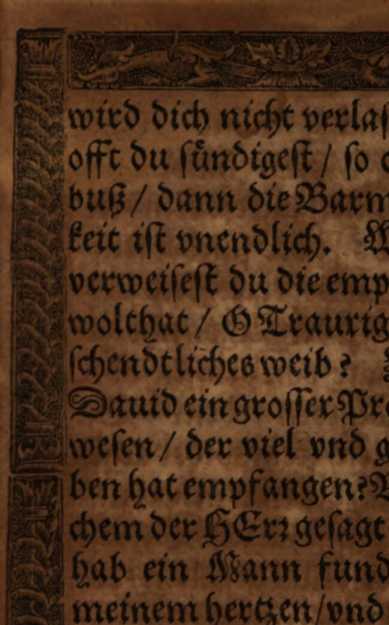 wird dich nicht verlaſ
offt du ſündigeſt / ſo
buß / dann die Barm
keit iſt vnendlich.
verweiſeſt du die emp
wolthat / O Traurig
ſchendtliches weib?
Dauid ein groſſer Pr
weſen / der viel vnd g
ben hat empfangen?
chem der HErꝛ geſagt
hab ein Mann fund
meinem hertzen / vnd